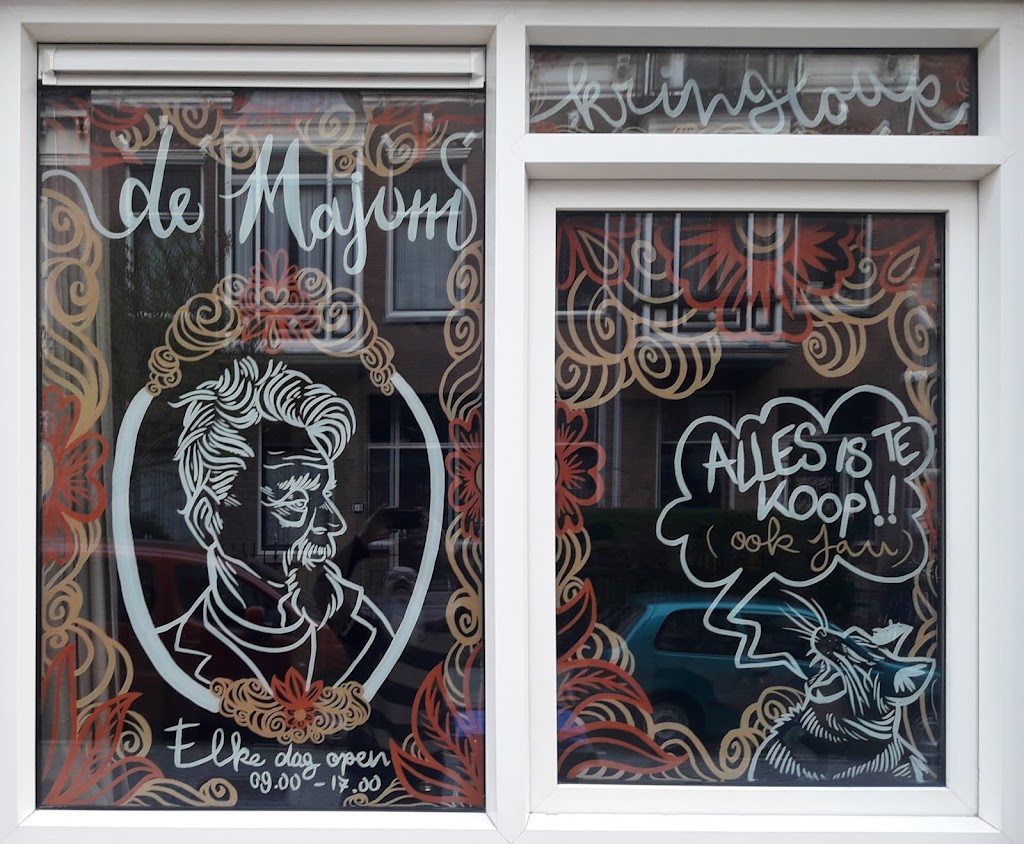 de Majoor
Elke dag open
09.00 - 17.00
kringloop
ALLES IS TE
KOOP!!
(ook Jan)